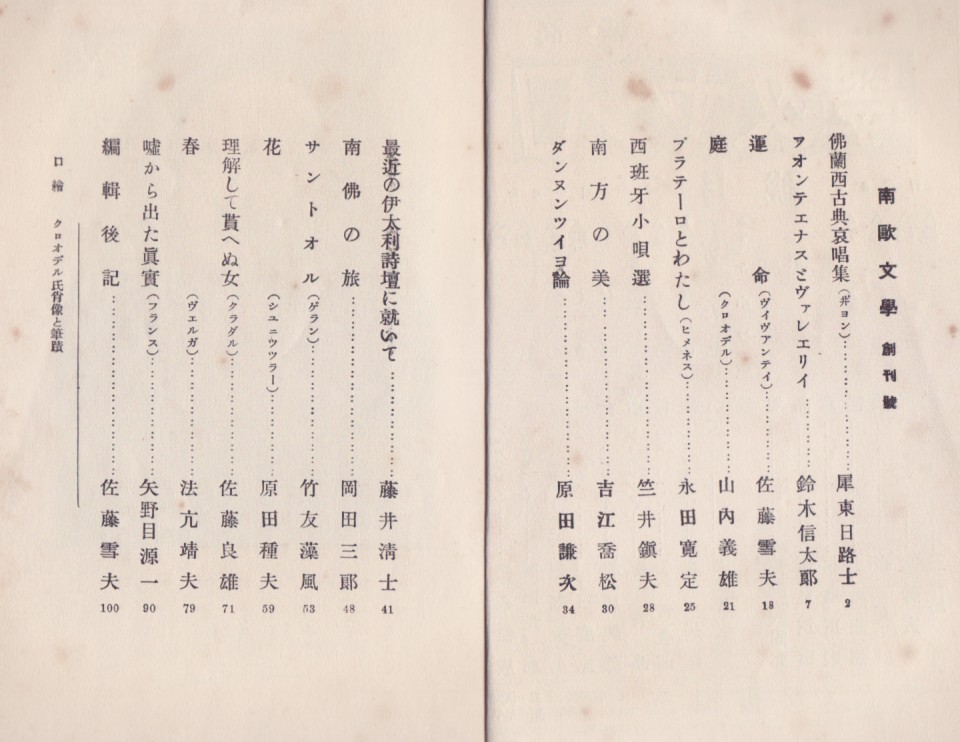 南歐文學 創刊號
佛蘭西古典哀唱集(ヸヨン)……………犀東日路士 2
フオンテエナスとヴァレエリイ……………鈴木信太郞 7
運命(ヴイヴアンテイ)……………佐藤雪夫 18
庭(クロオデル)……………山內義雄 21
プラテーロとわたし(ヒメネス)……………永田寬定 25
西班牙小唄選……………竺井鎭夫 28
南方の美……………吉江喬松 30
ダンヌンツイヨ論……………原田謙次 34
最近の伊太利詩壇に就いて……………藤井淸士 41
南佛の旅……………岡田三郞 48
サントオル(ゲラン)……………竹友藻風 53
花(シユニツツラー)……………原田種夫 59
理解して貰へぬ女(クラダル)……………佐藤良雄 71
春(ヴエルガ)……………法亢靖夫 79
噓から出た眞實(フランス)……………矢野目源一 90
編輯後記……………佐藤雪夫 100
口繪 クロオデル氏肖像と筆蹟